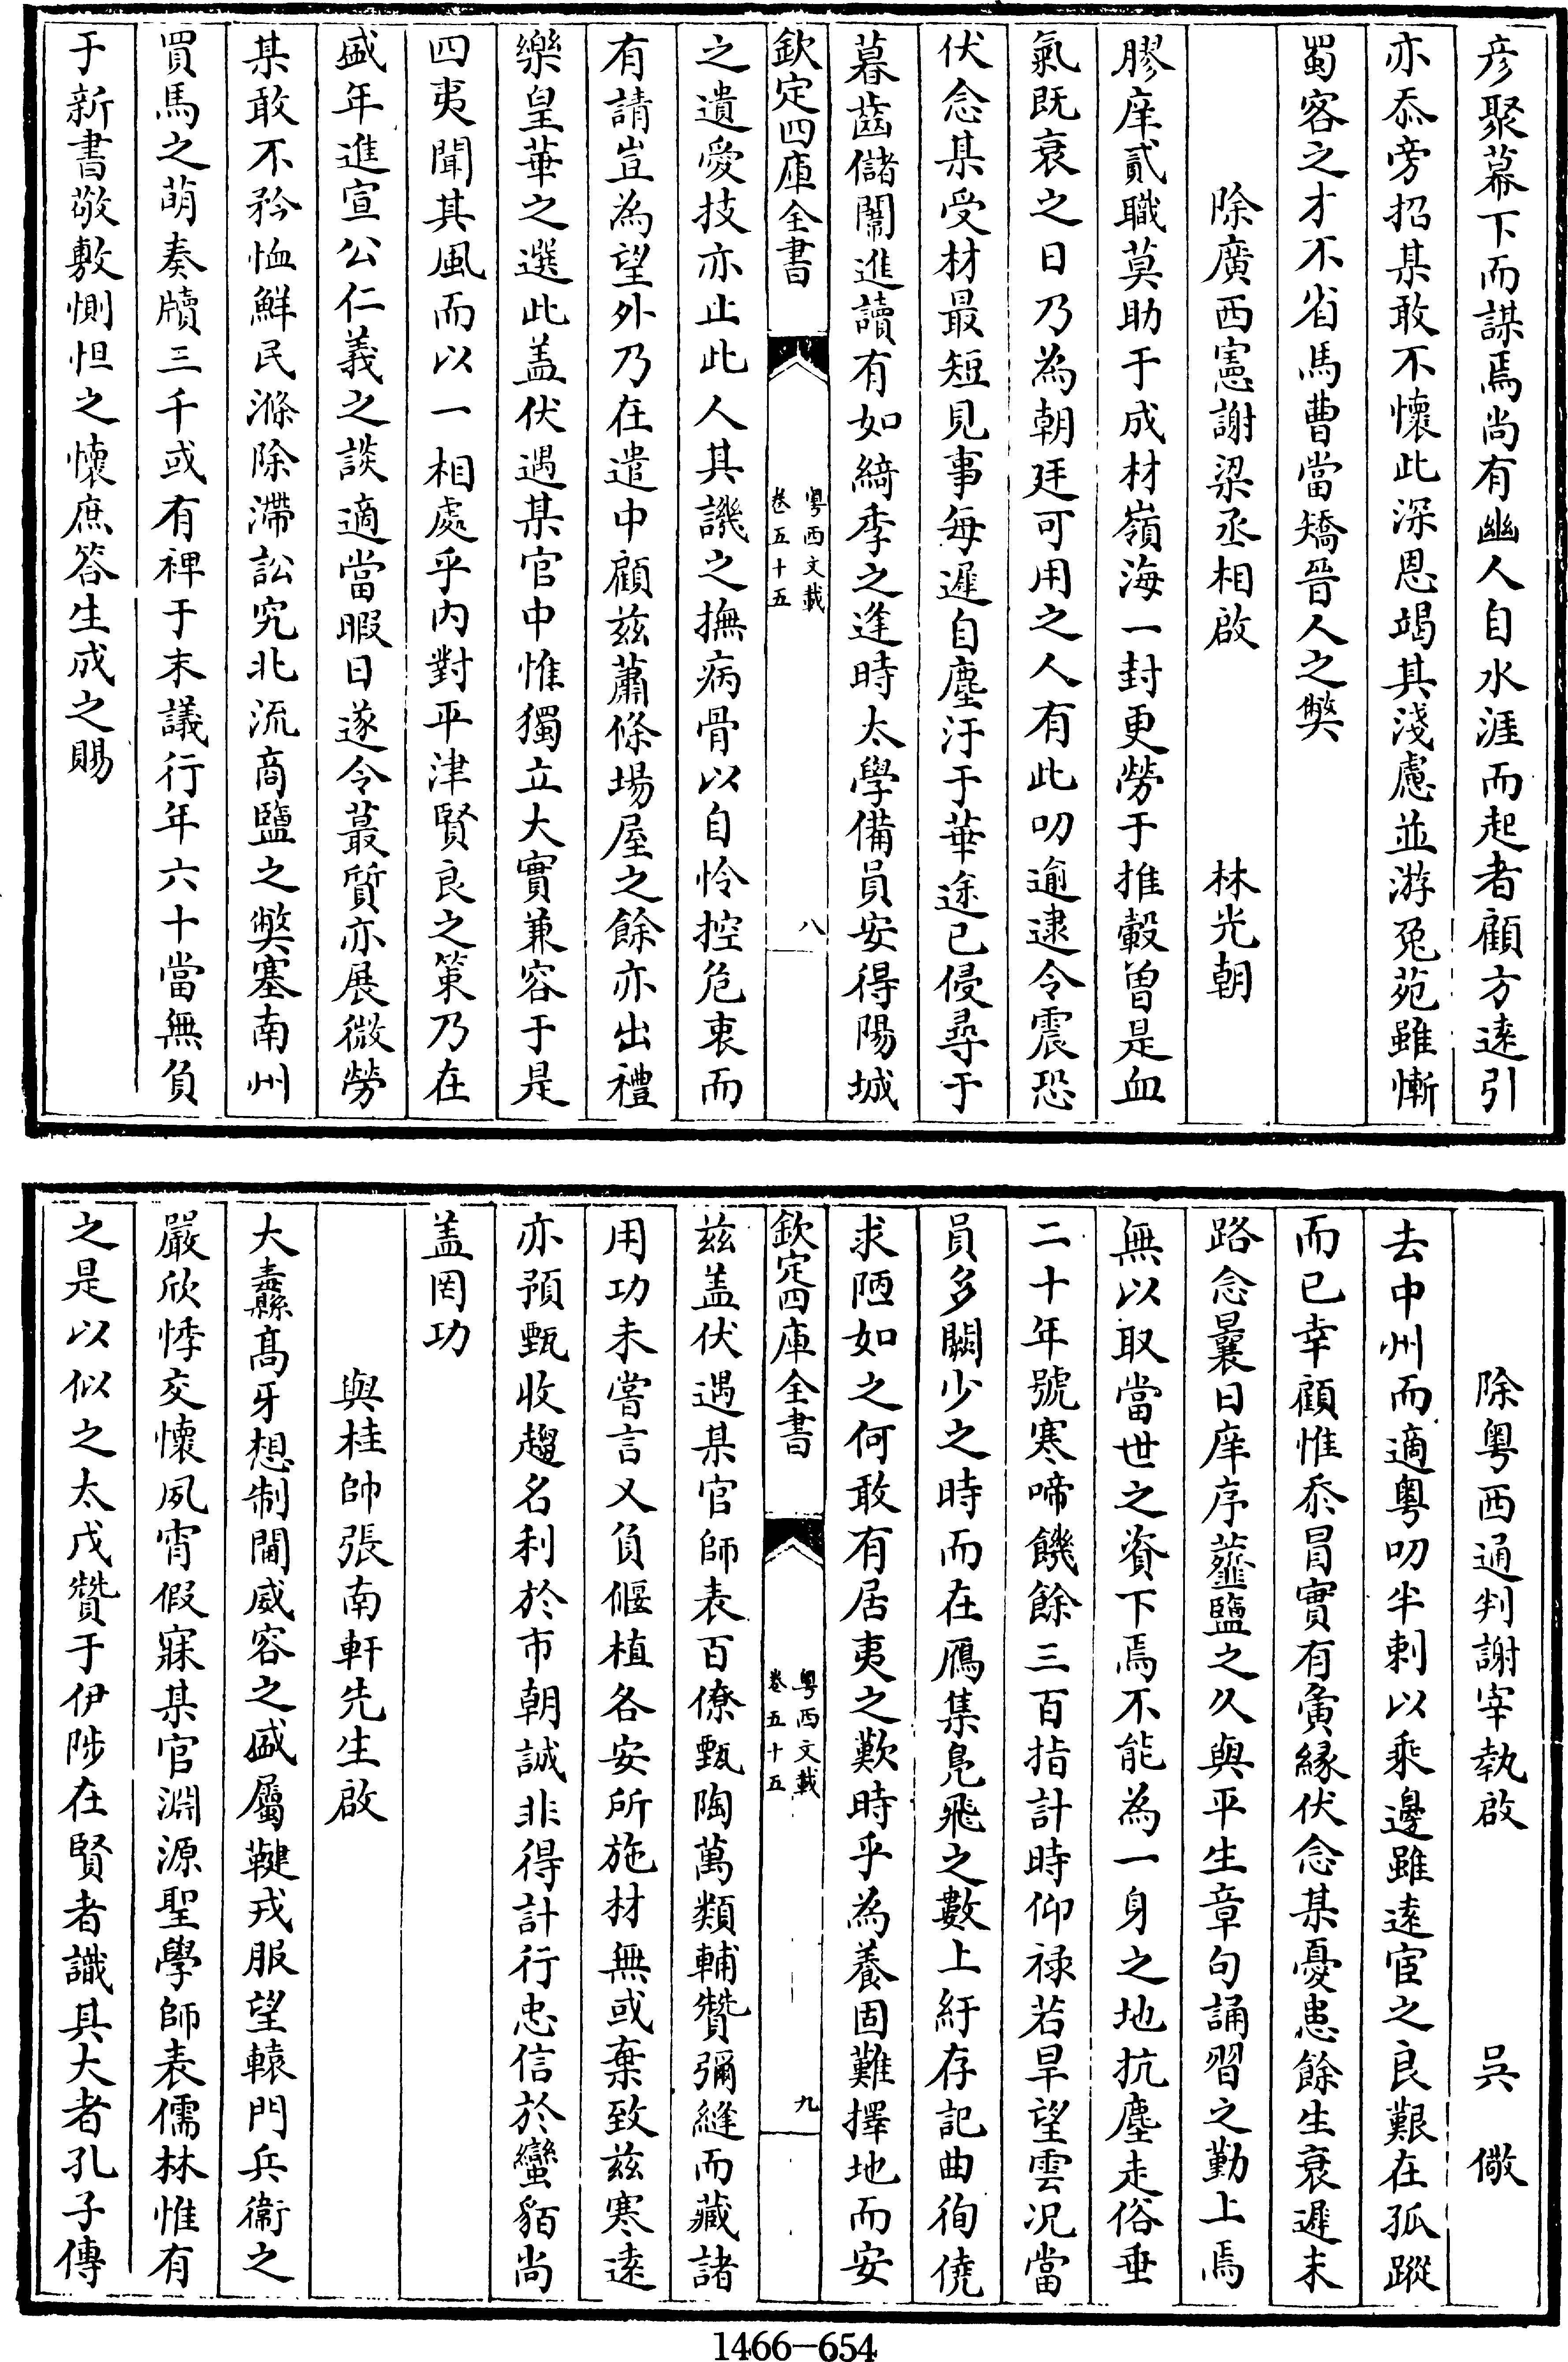 彦聚幕下而謀焉尚有幽人自水涯而起者顧方逺引
亦忝旁招某敢不懷此深恩竭其淺慮並游兎苑雖慚
蜀客之才不省馬曹當矯晉人之獘
除廣西憲謝梁丞相啟 林光朝
膠庠貳職莫助于成材嶺海一封更勞于推轂曽是血
氣既衰之日乃為朝廷可用之人有此叨逾逮令震恐
伏念某受材最短見事每遲自塵汙于華途已侵尋于
暮齒儲闈進讀有如綺季之逢時太學備員安得陽城
欽定四庫全書
粤西文載
卷五十五
八
之遺愛技亦止此人其譏之撫病骨以自怜控危衷而
有請豈為望外乃在遣中顧兹蕭條場屋之餘亦出禮
樂皇華之選此盖伏遇某官中惟獨立大實兼容于是
四夷聞其風而以一相處乎内對平津賢良之策乃在
盛年進宣公仁義之談適當暇日遂令蕞質亦展微勞
某敢不矜恤鮮民滌除滯訟究北流商鹽之獘塞南州
買馬之萌奏牘三千或有裨于末議行年六十當無負
于新書敬敷惻怛之懷庶答生成之賜
除粤西通判謝宰執啟 吳儆
去中州而適粤叨半刺以乘邊雖逺宦之良艱在孤蹤
而已幸顧惟忝冒實有夤縁伏念某憂患餘生衰遲末
路念曩日庠序虀鹽之久與平生章句誦習之勤上焉
無以取當世之資下焉不能為一身之地抗塵走俗垂
二十年號寒啼饑餘三百指計時仰禄若旱望雲况當
員多闕少之時而在鴈集鳧飛之數上紆存記曲徇僥
求陋如之何敢有居夷之歎時乎為養固難擇地而安
欽定四庫全書
粤西文載
卷五十五
九
兹盖伏遇某官師表百僚甄陶萬類輔贊彌縫而藏諸
用功未嘗言乂負偃植各安所施材無或棄致兹寒逺
亦預甄收趨名利於市朝誠非得計行忠信於蠻貊尚
盖罔功
與桂帥張南軒先生啟
大纛髙牙想制閫威容之盛屬鞬戎服望轅門兵衞之
嚴欣悸交懷夙宵假寐某官淵源聖學師表儒林惟有
之是以似之太戊贊于伊陟在賢者識其大者孔子傳
1466-654